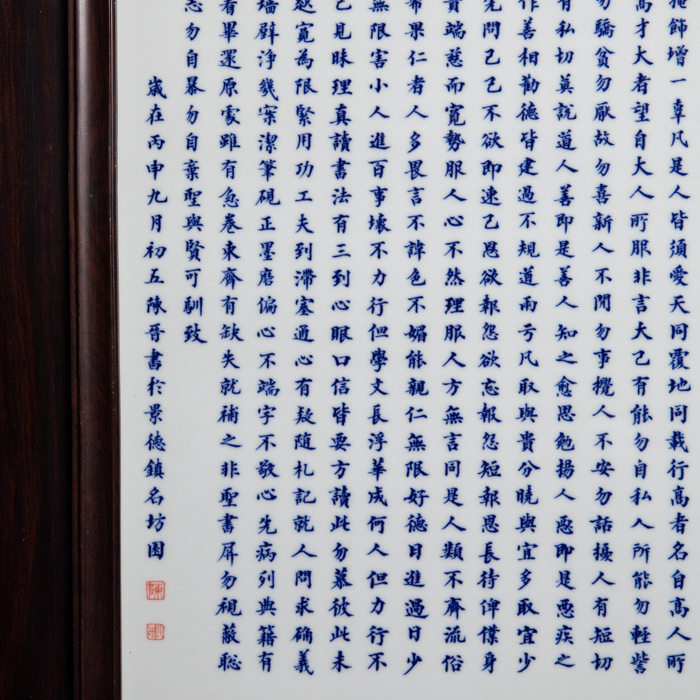 掩飾增一辜凡是人皆須愛天同覆地同載行高者名自高人所
高才大者望自大人所服非言大己有能勿自私人所能勿輕訾
勿驕貧勿厭故勿喜新人不閒勿事攪人不安勿話擾人有短切
有私切莫說道人善即是善人知之愈思勉揚人惡即是惡疾之
作善相勸德皆建過不規道兩亏凡取與貴分曉與宜多取宜少
先問己己不欲即速已恩欲報怨欲忘報怨短報恩長待婢僕身
貴端慈而寬勢服人心不然理服人方無言同是人類不齊流俗
希果仁者人多畏言不諱色不媚能親仁無限好德日進過日少
無限害小人進百事壞不力行但學文長浮華成何人但力行不
己見昧理真讀書法有三到心眼口信皆要方讀此勿慕彼此未
寬為限緊用功工夫到滯塞通心有疑隨札記就人問求确義
牆壁淨幾案潔筆硯正墨磨偏心不端字不敬心先病列典籍有
看畢還原處雖有急卷束齊有缺失就補之非聖書屏勿視蔽聰
勿自暴勿自棄聖與賢可馴致
歲在丙申九月初五陳晉書於景德鎮名坊園